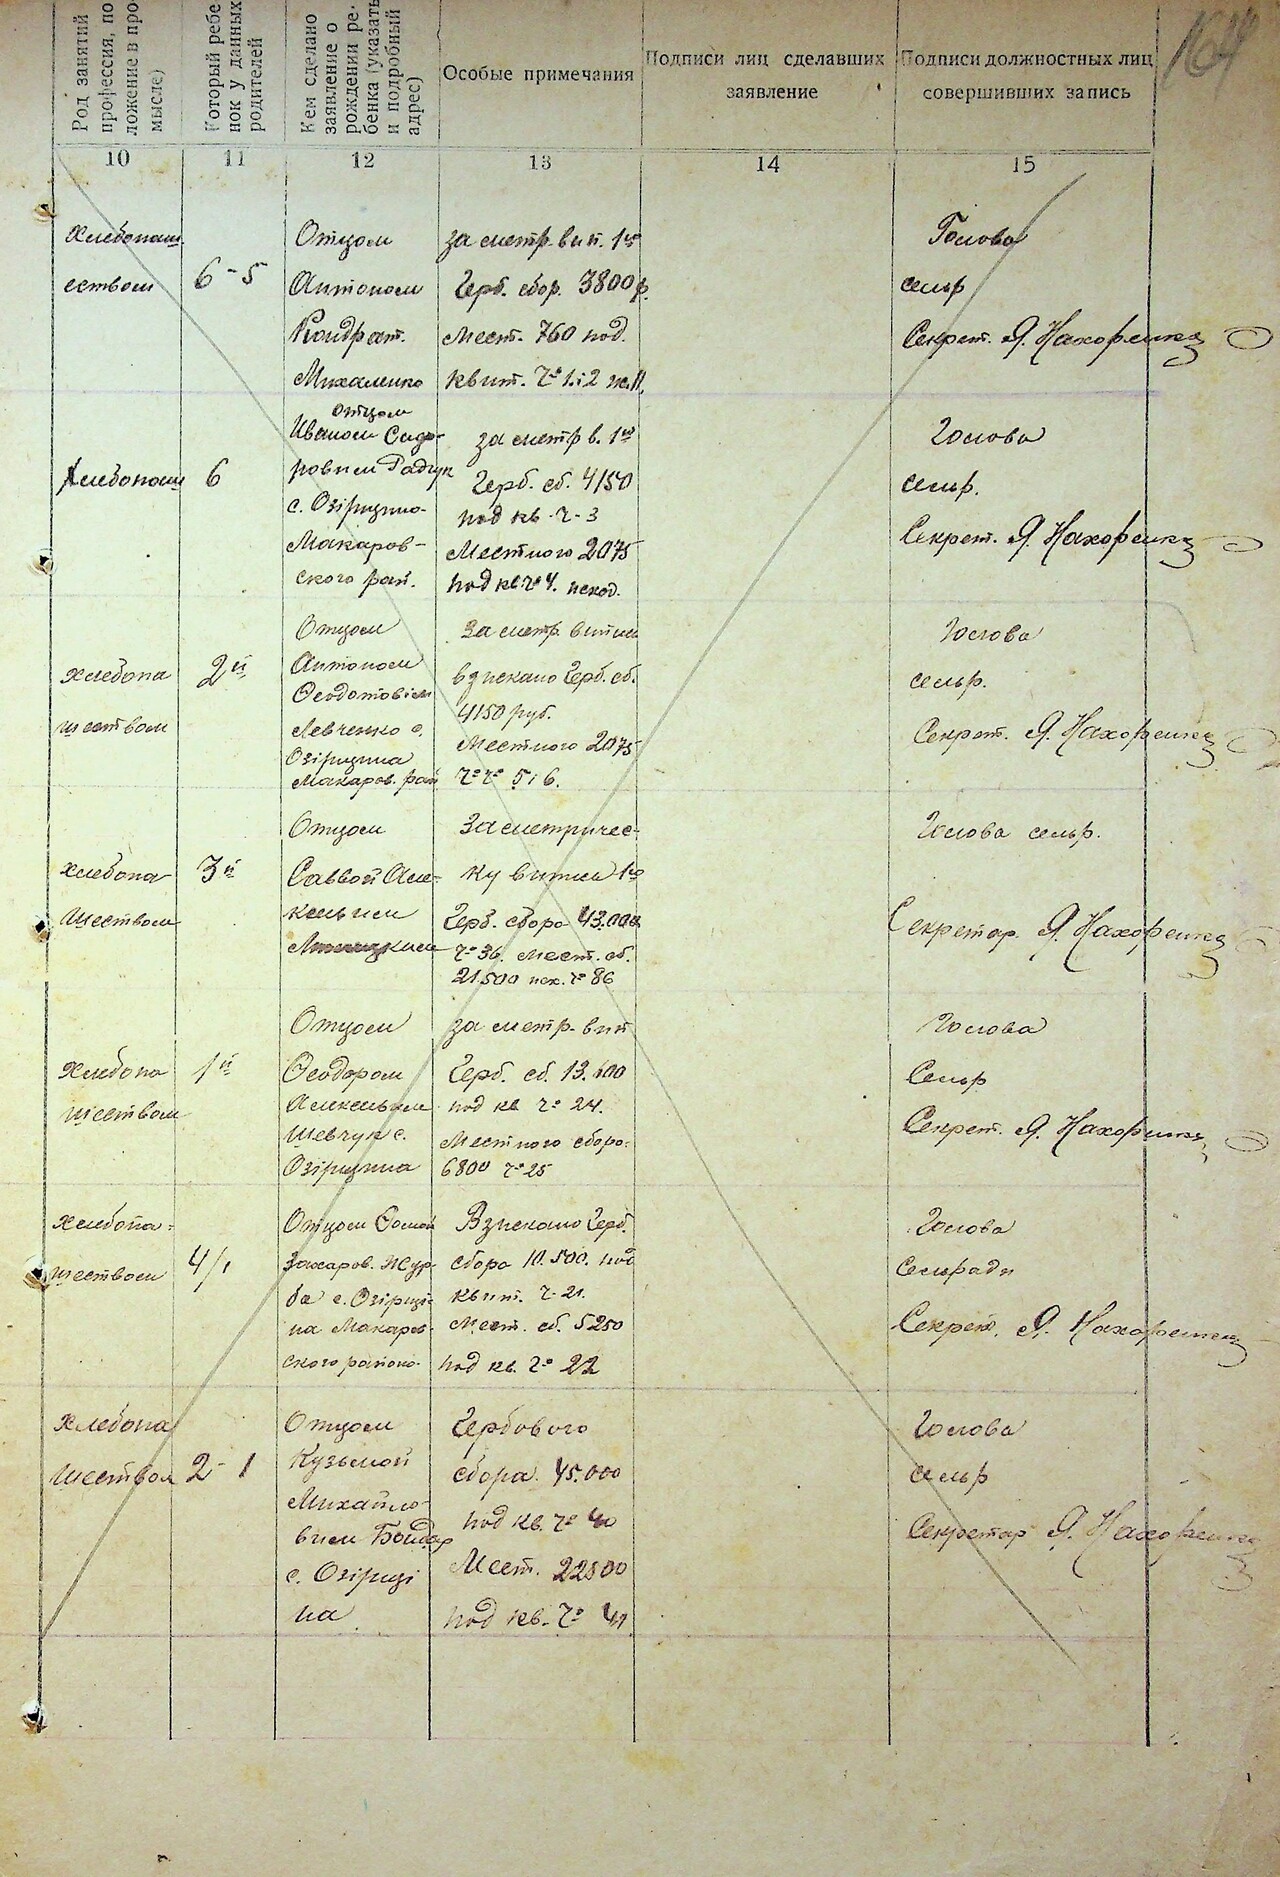 Род занятий профессия, положение в промысле)
Который ребенок у данных родителей
Кем сделано заявление о рождении ребенка (указать и подробный адрес)
Особые примечания
Подписи лиц сделавших заявление
Подписи должностных лиц совершивших запись
10 11 12 13 14 15
Хлебопаш
еством
6-5
Отцом
Антоном
Кондрат.
Михаленко
за метр. вип. 1го
Герб. сбор. 3800 р.
Мест. 760 под.
квит. Чо 1 і 2
Голова
сельр
Секрет. Я.
Хлебопаш
6
отцом
Иваном Сидо-
ровым Радчук
с. Озірщино-
Макаров-
ского рай.
за метр в. 1го
Герб. сб. 4150
под кв. ч-3
Местного 2075
под кв. Чо 4.
Голова
сельр.
Секрет. Я.
хлебопа
шеством
2й
Отцом
Антоном
Феодотовім
Левченко с.
Озірщина
Макаров. рай
За метр. випис
взискано Герб. сб.
4150 руб.
Местного 2075
Чо Чо 5 і 6.
Голова
сельр.
Секрет. Я.
хлебопа
шеством
3й
Отцом
Саввой Але-
ксеьим
За метричес-
ку випис 1го
Герб. сбора 43.000
Чо 36. Мест. сб.
21.500 Чо 86
Голова сельр.
Секретар. Я.
Хлебопа
шеством
1й
Отцом
Феодором
Шевчук с.
Озірщина
за метр. вип
Герб. сб. 13.600
под кв Чо 24.
Местного сбора:
6800 Чо 25
Голова
Сельр
Секрет. Я.
хлебопа-
шеством
4/1
Отцом Фомой
Захаров. Жур-
ба с. Озірщі-
на Макаров-
ского района.
Взискано Герб.
сбора 10.500. под
квит. Ч. 21.
Мест. сб. 5250
под кв. Чо 22
Голова
Сельради
Секрет. Я.
Хлебопа
шеством
2-1
Отцом
Кузьмой
Михайло-
вим Бондар
с. Озірщі
на
Гербового
сбора. 45.000
под кв. Чо 40
Мест. 22500
под кв. Чо 41
Голова
сельр
Секретар Я.